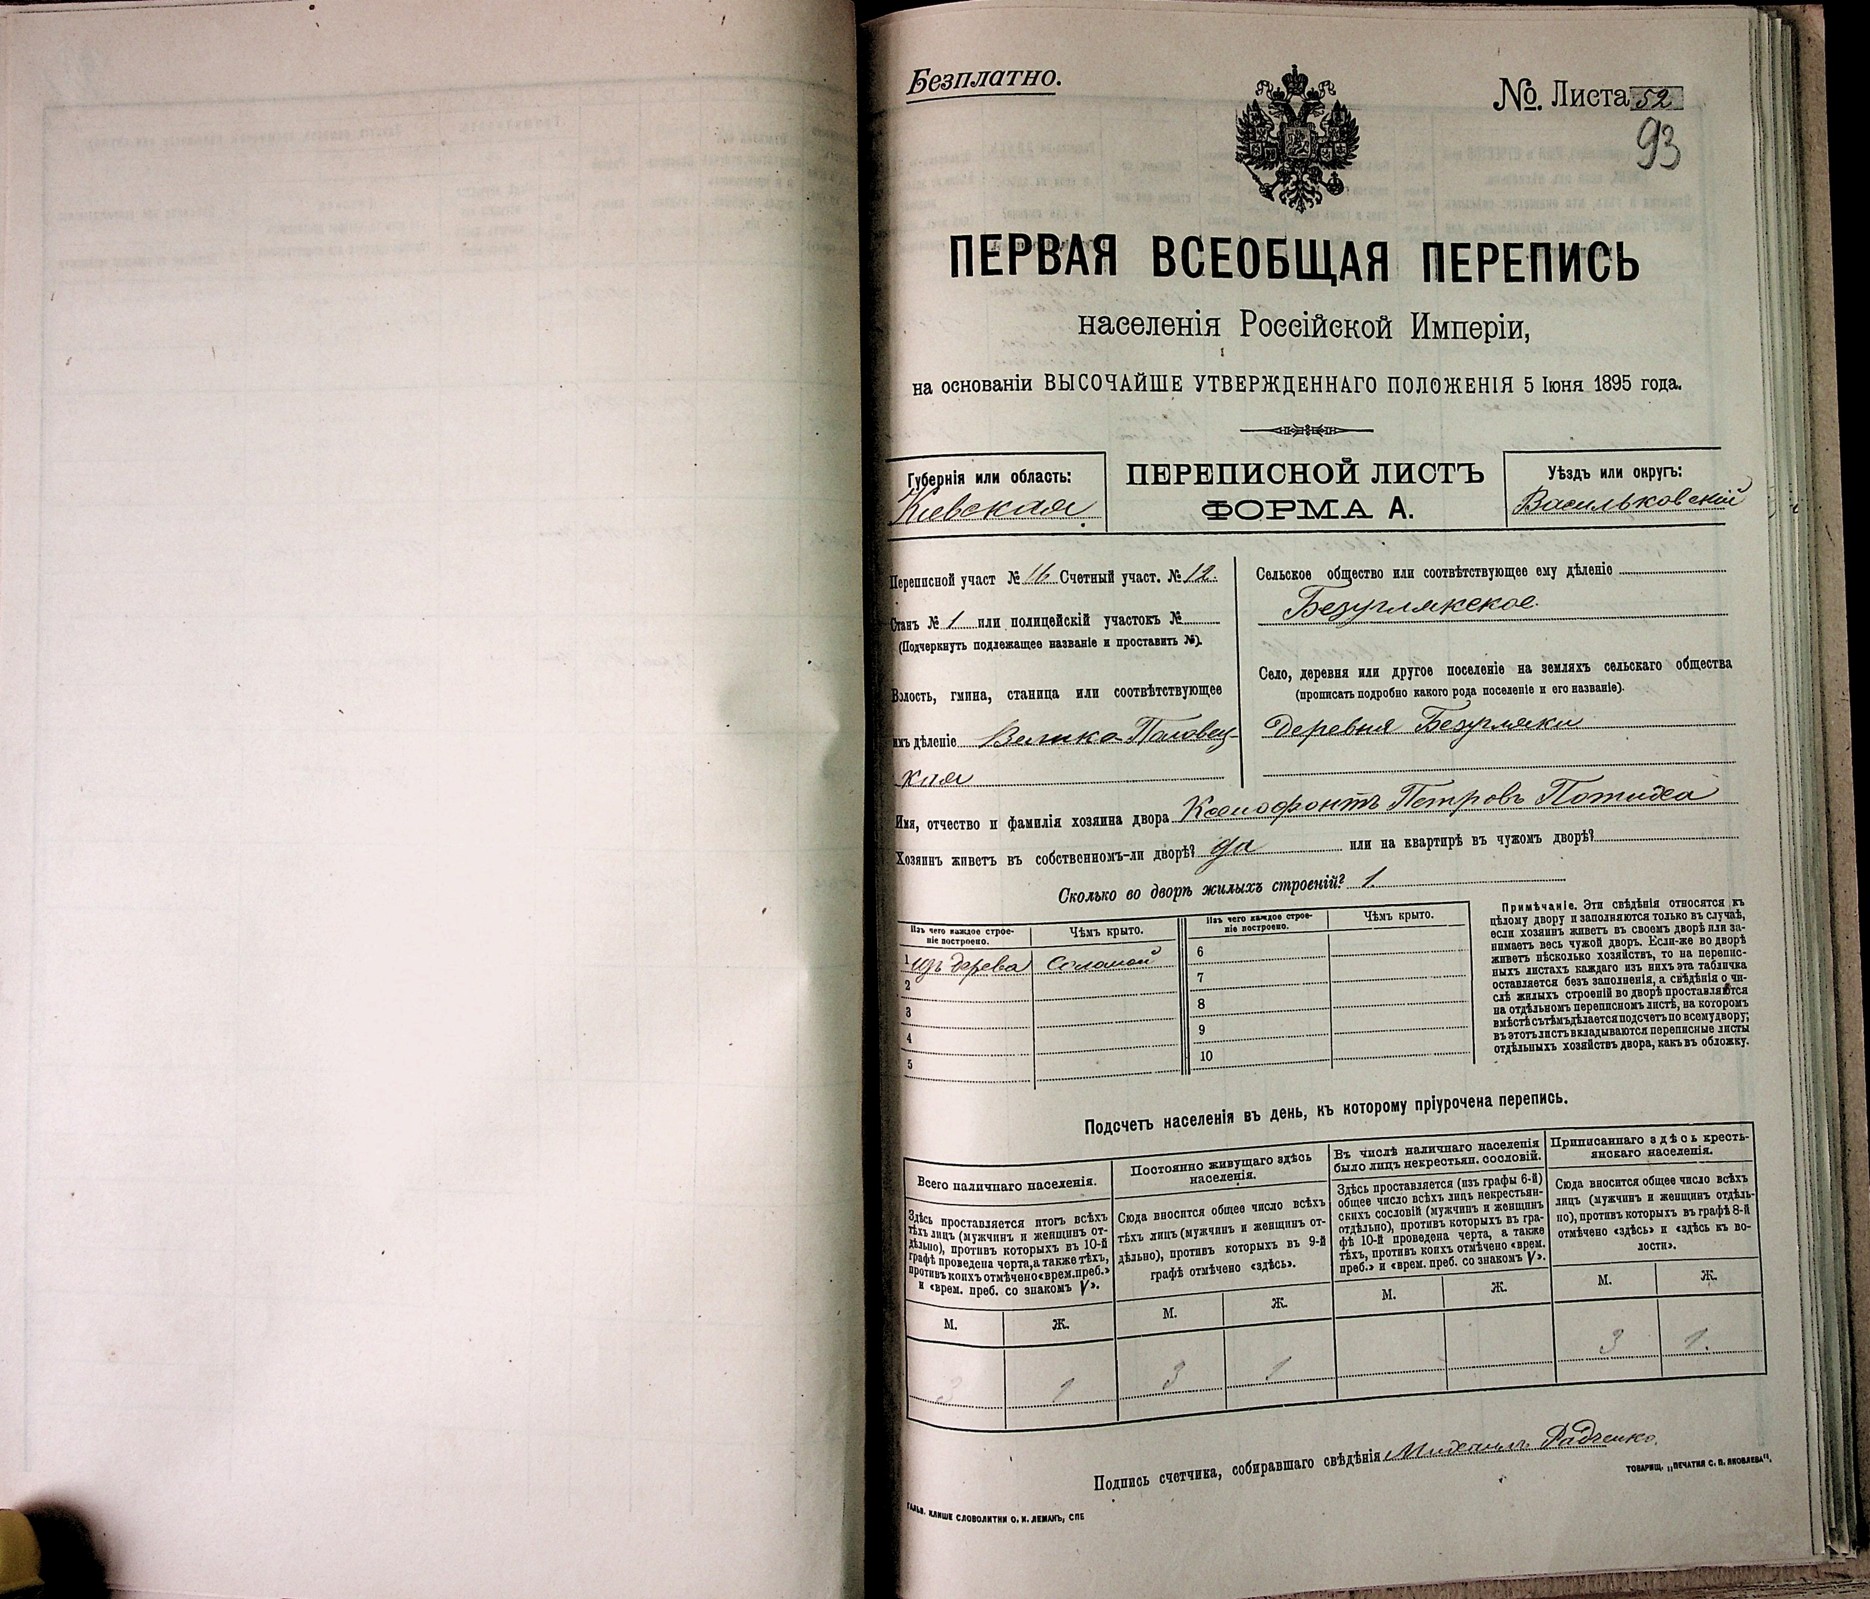 Безплатно.
№. Листа 52
93
ПЕРВАЯ ВСЕОБЩАЯ ПЕРЕПИСЬ
населенія Россійской Имперіи,
на основаніи ВЫСОЧАЙШЕ УТВЕРЖДЕННАГО ПОЛОЖЕНІЯ 5 Іюня 1895 года.
Губернія или область:
Кіевская
ПЕРЕПИСНОЙ ЛИСТЪ
ФОРМА А.
Уѣздъ или округъ:
Васильковскій
Переписной участ № 16 Счетный участ. № 12.
Станъ № 1 или полицейскій участокъ №
(Подчеркнуть подлежащее названіе и проставить №).
Волость, гмина, станица или соотвѣтствующее
имъ дѣленіе Велико-Половец-
кая
Сельское общество или соотвѣтствующее ему дѣленіе
Безуглякское.
Село, деревня или другое поселеніе на земляхъ сельскаго общества
(прописать подробно какого рода поселеніе и его названіе).
деревня Безугляки
Имя, отчество и фамилія хозяина двора Ксенофонтъ Петровъ Потиха
Хозяинъ живетъ въ собственномъ-ли дворѣ? да или на квартирѣ въ чужомъ дворѣ?
Сколько во дворѣ жилыхъ строеній? 1.
Изъ чего каждое строе-
ніе построено.
Чѣмъ крыто.
1 изъ дерева соломой
2
3
4
5
Изъ чего каждое строе-
ніе построено.
Чѣмъ крыто.
6
7
8
9
10
Примѣчаніе. Эти свѣдѣнія относятся къ
цѣлому двору и заполняются только въ случаѣ,
если хозяинъ живетъ въ своемъ дворѣ или за-
нимаетъ весь чужой дворъ. Если-же во дворѣ
живетъ нѣсколько хозяйствъ, то на перепис-
ныхъ листахъ каждаго изъ нихъ эта табличка
оставляется безъ заполненія, а свѣдѣнія о чи-
слѣ жилыхъ строеній во дворѣ проставляются
на отдѣльномъ переписномъ листѣ, на которомъ
вмѣстѣ съ тѣмъ дѣлается подсчетъ по всему двору;
въ этотъ листъ вкладываются переписные листы
отдѣльныхъ хозяйствъ двора, какъ въ обложку.
Подсчетъ населенія въ день, къ которому пріурочена перепись.
Всего наличнаго населенія.
Здѣсь проставляется итогъ всѣхъ
тѣхъ лицъ (мужчинъ и женщинъ от-
дѣльно), противъ которыхъ въ 10-й
графѣ проведена черта, а также тѣхъ,
противъ коихъ отмѣчено «врем. преб.»
и «врем. преб. со знакомъ V».
М. Ж.
3 1
Постоянно живущаго здѣсь
населенія.
Сюда вносится общее число всѣхъ
тѣхъ лицъ (мужчинъ и женщинъ от-
дѣльно), противъ которыхъ въ 9-й
графѣ отмѣчено «здѣсь».
М. Ж.
3 1
Въ числѣ наличнаго населенія
было лицъ некрестьян. сословій.
Здѣсь проставляется (изъ графы 6-й)
общее число всѣхъ лицъ некрестьян-
скихъ сословій (мужчинъ и женщинъ
отдѣльно), противъ которыхъ въ гра-
фѣ 10-й проведена черта, а также
тѣхъ, противъ коихъ отмѣчено «врем.
преб.» и «врем. преб. со знакомъ V».
М. Ж.
Приписаннаго здѣсь кресть-
янскаго населенія.
Сюда вносится общее число всѣхъ
лицъ (мужчинъ и женщинъ отдѣль-
но), противъ которыхъ въ графѣ 8-й
отмѣчено «здѣсь» и «здѣсь къ во-
лости».
М. Ж.
3 1.
Подпись счетчика, собиравшаго свѣдѣнія Михаилъ Радченко.
ГАЛЬВ. КЛИШЕ СЛОВОЛИТНИ О. И. ЛЕМАНЪ, СПБ
ТОВАРИЩ. „ПЕЧАТНЯ С. П. ЯКОВЛЕВА“.